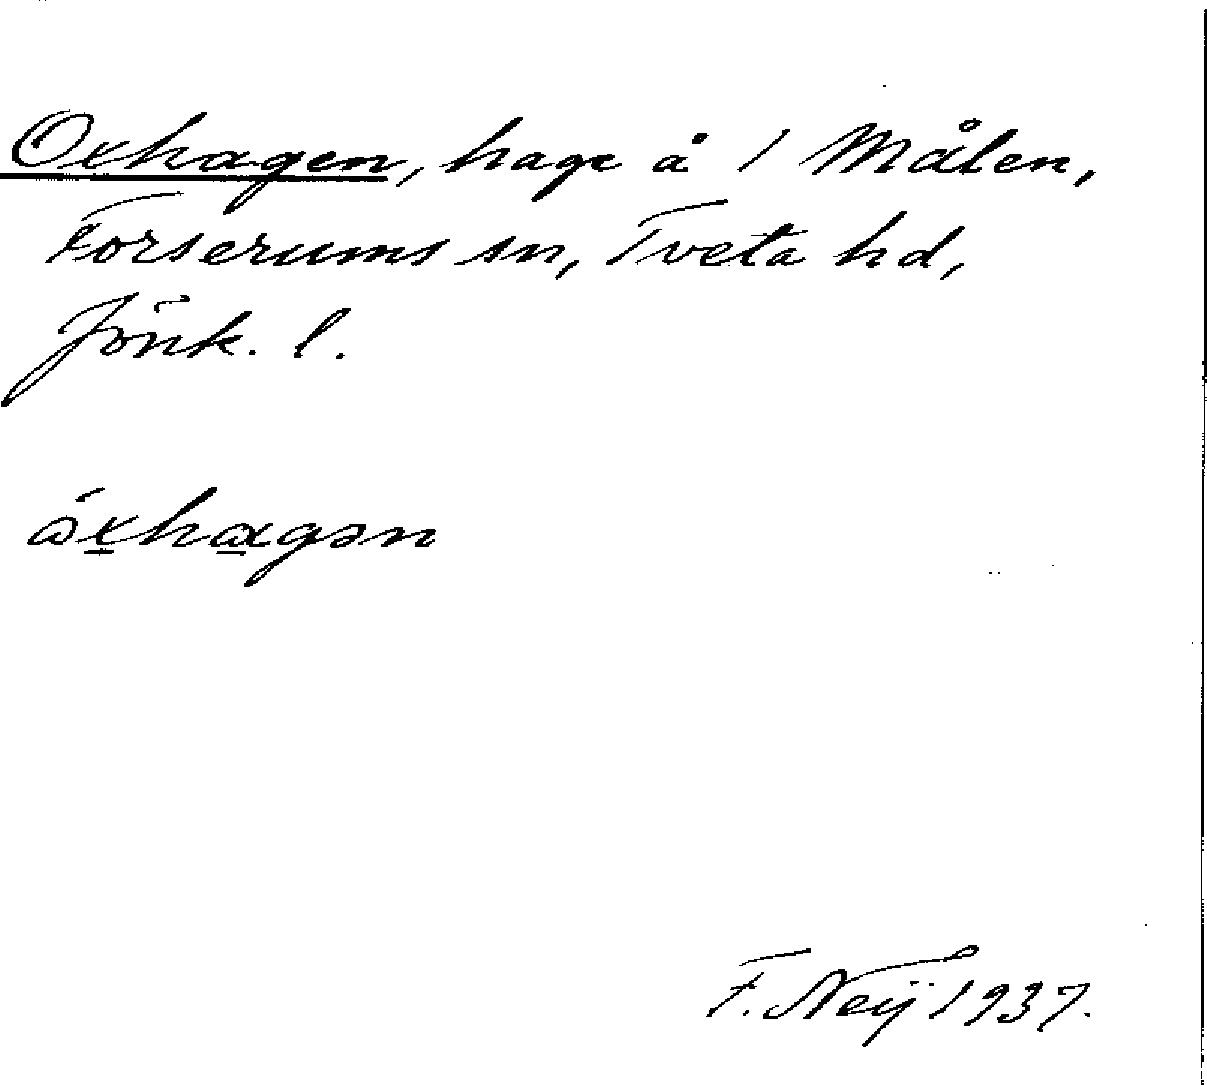 Oxhagen, hage å 1 Målen,
Forserums sn, Tveta hd,
Jönk. l.
åxhagən
F. Neij 1937.